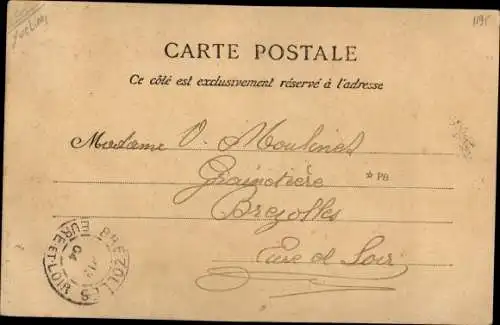 Yvelines
1195
CARTE POSTALE
Ce côté est exclusivement réservé à l'adresse
Madame V. Moulinet
Grainetière
* PB
Brezolles
Eure et Loir
BREZOLLES
04
EURE-ET-LOIR